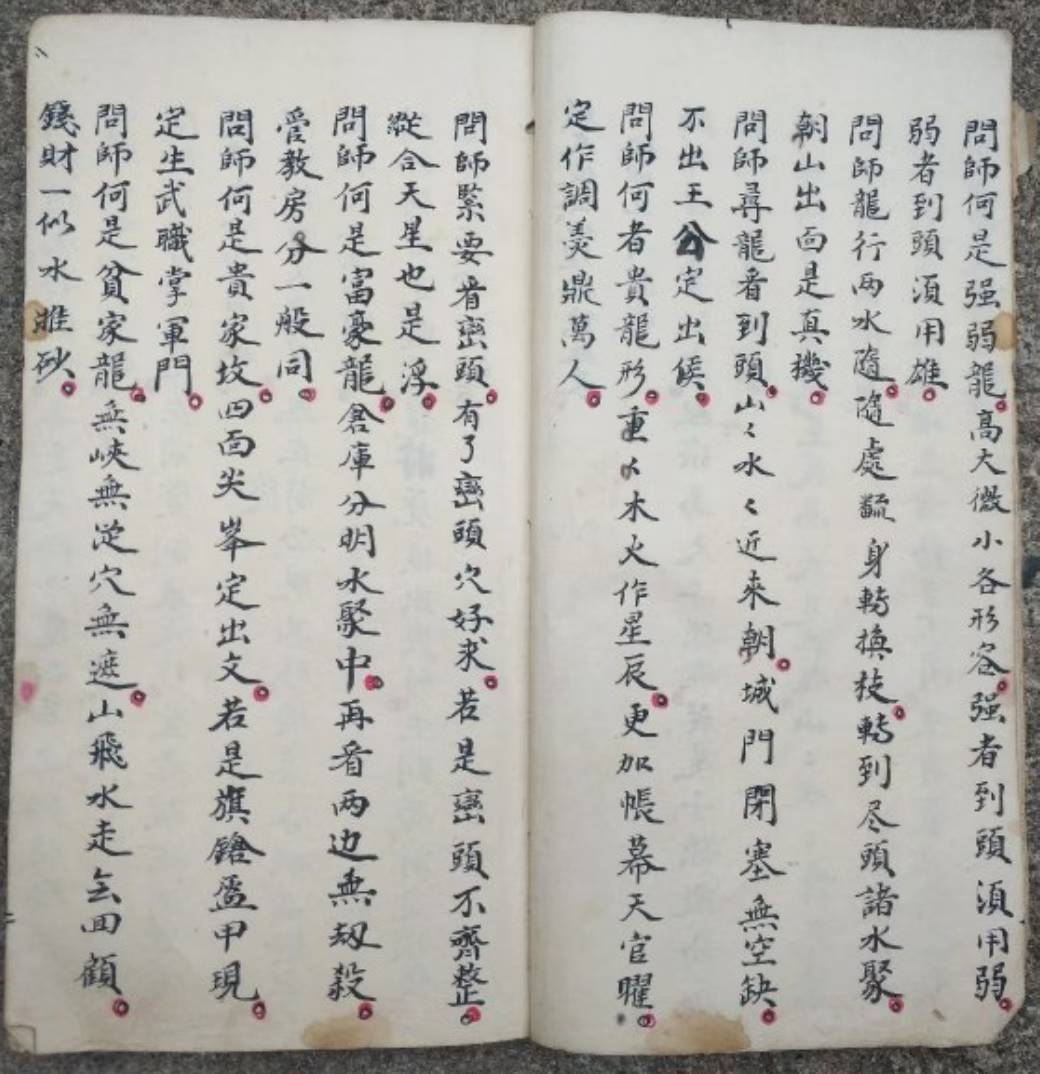 問師何是强弱龍高大微小各形容强者到頭須用弱
弱者到頭須用雄
問師龍行两水隨隨處翻身轉換枝轉到尽頭諸水聚
朝山出面是真機
問師尋龍看到頭山〻水〻近來朝城門閉塞無空缺
不出王公定出侯
問師何者貴龍形重木火作星辰更加帳幕天官曜
定作調羮鼎萬人
問師緊要看巒頭有了巒頭穴好求若是巒頭不齊整
縱合天星也是浮
問師何是富豪龍倉庫分明水聚中再看两边無刼殺
管教房分一般同
問師何是貴家坟四面尖峯定出文若是旗鎗盔甲現
定生武職掌軍門
問師何是貧家龍無峽無從穴無遮山飛水走去回顧
錢財一似水推砂